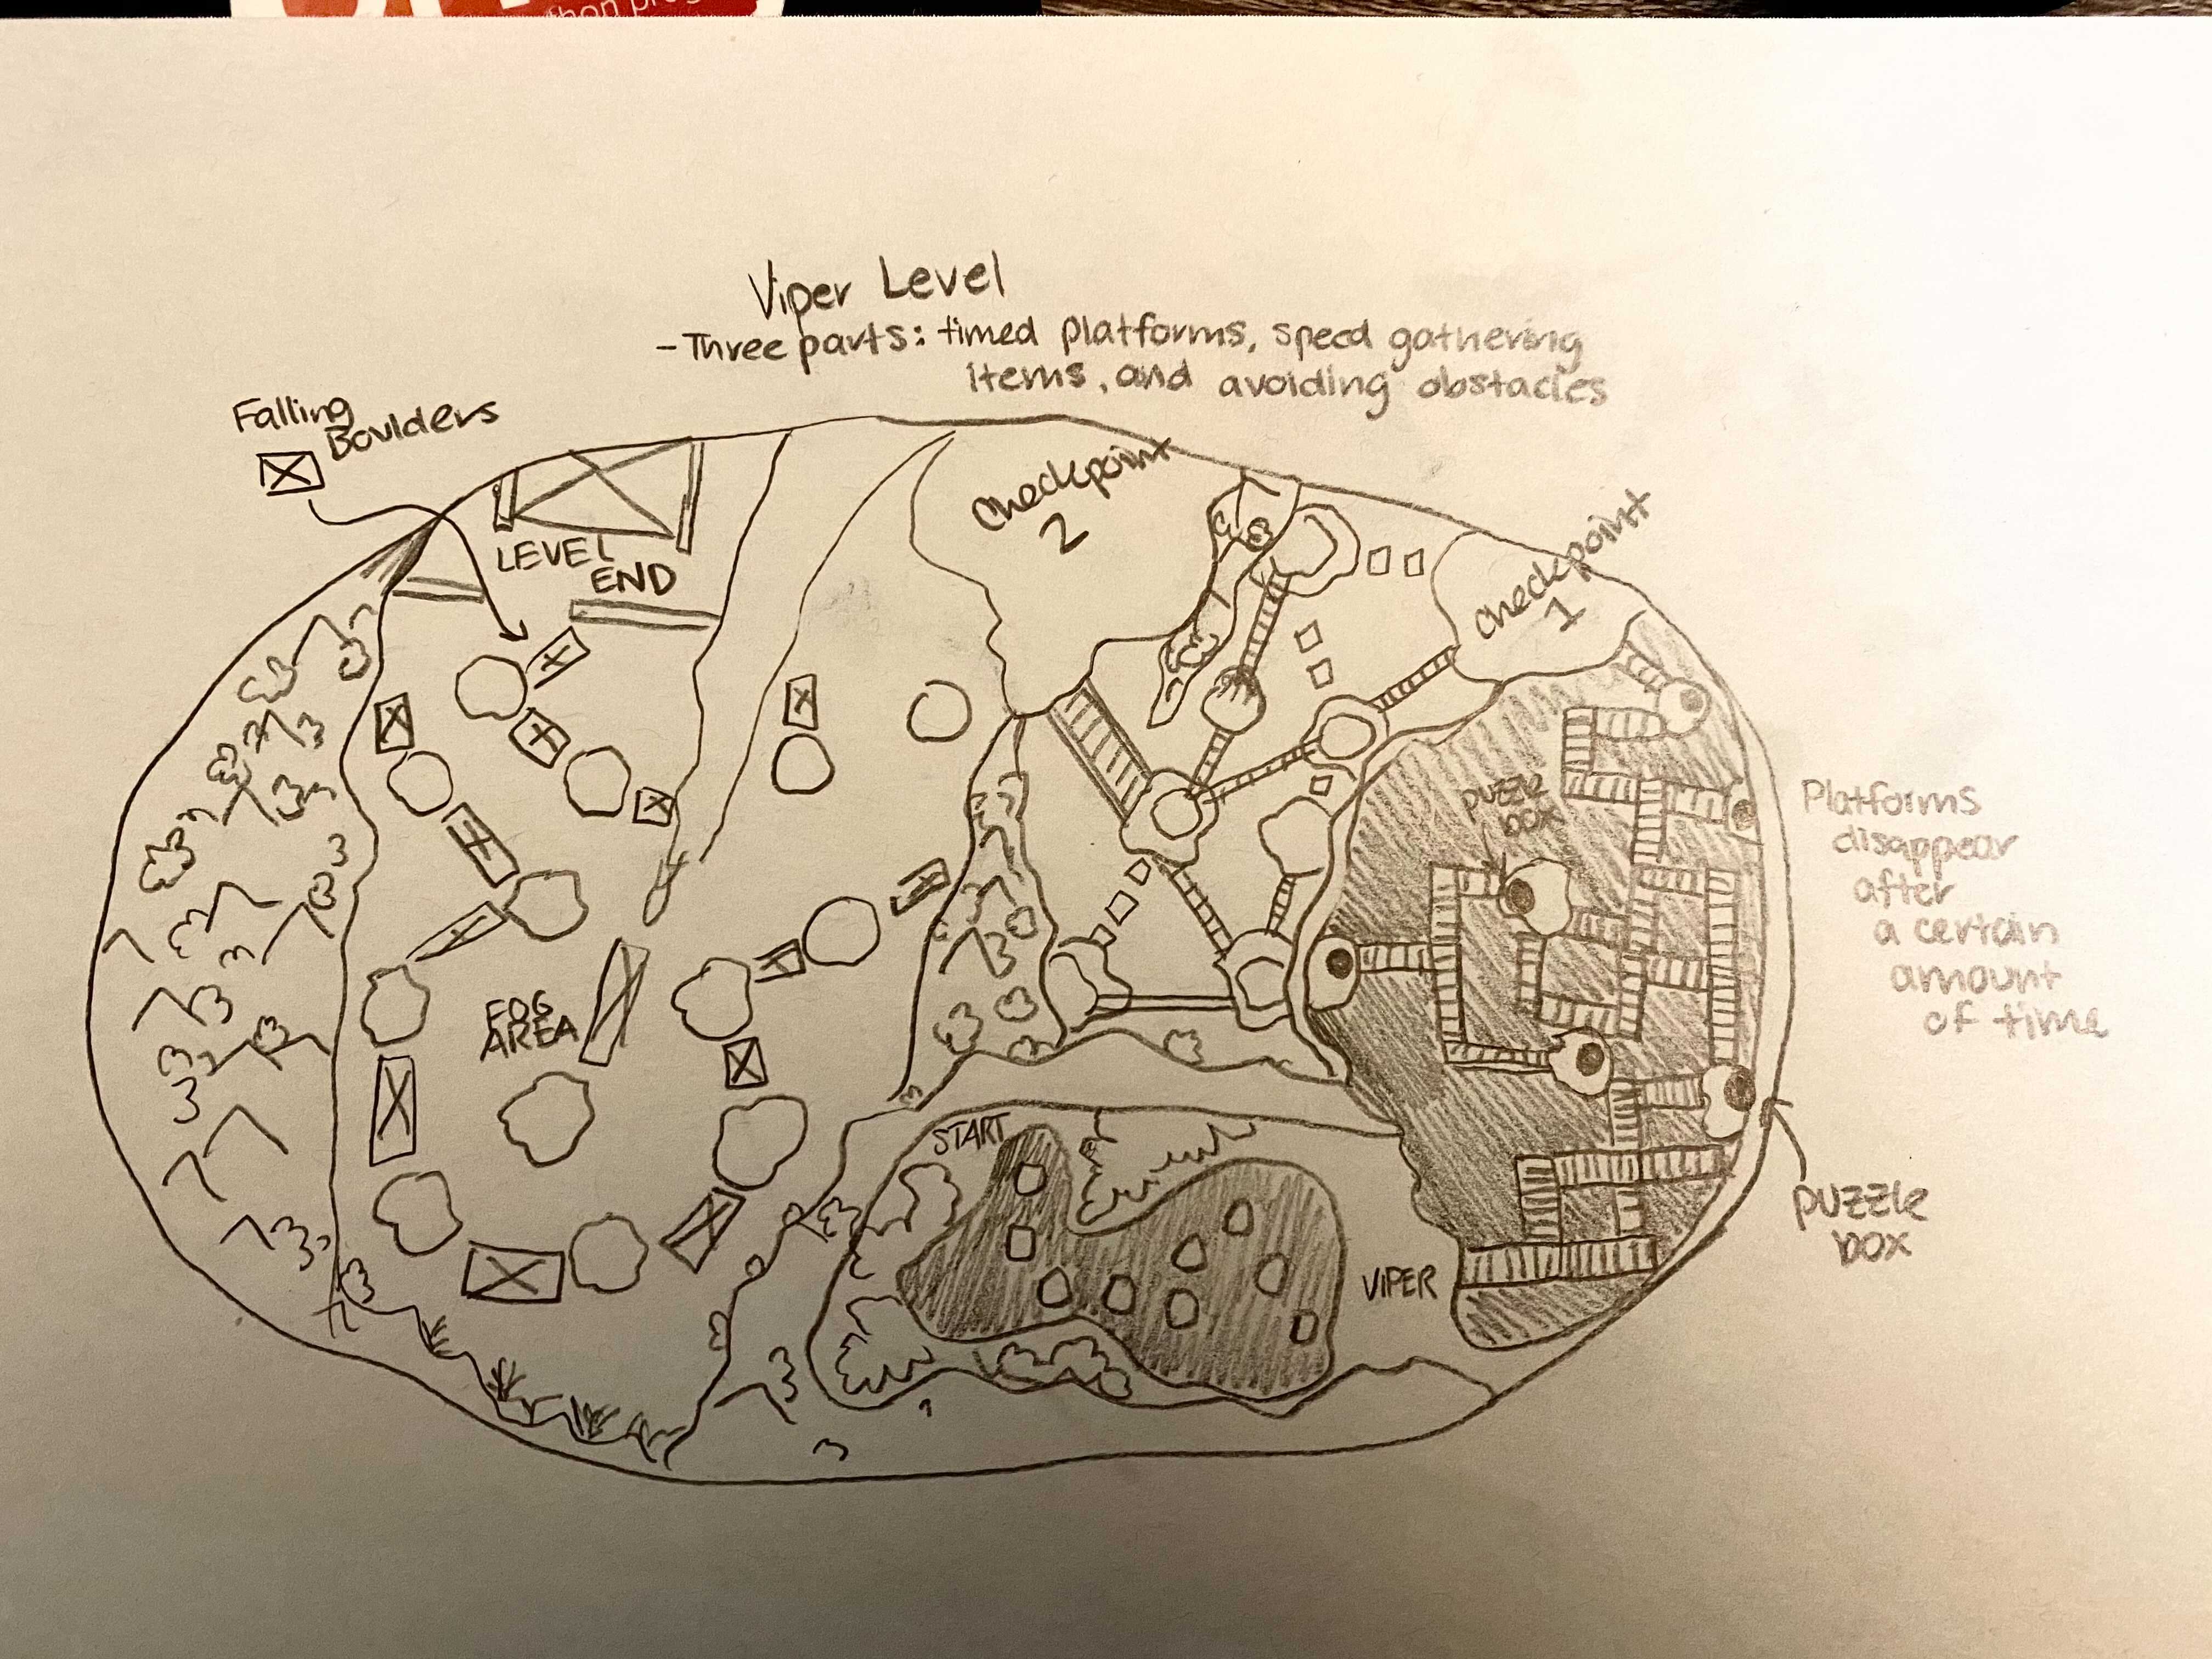 Viper Level
- Three parts: timed platforms, speed gathering
items, and avoiding obstacles
Falling
Boulders
LEVEL
END
Checkpoint
2
Checkpoint
1
Puzzle
box
Platforms
disappear
after
a certain
amount
of time
FOG
AREA
START
VIPER
puzzle
box